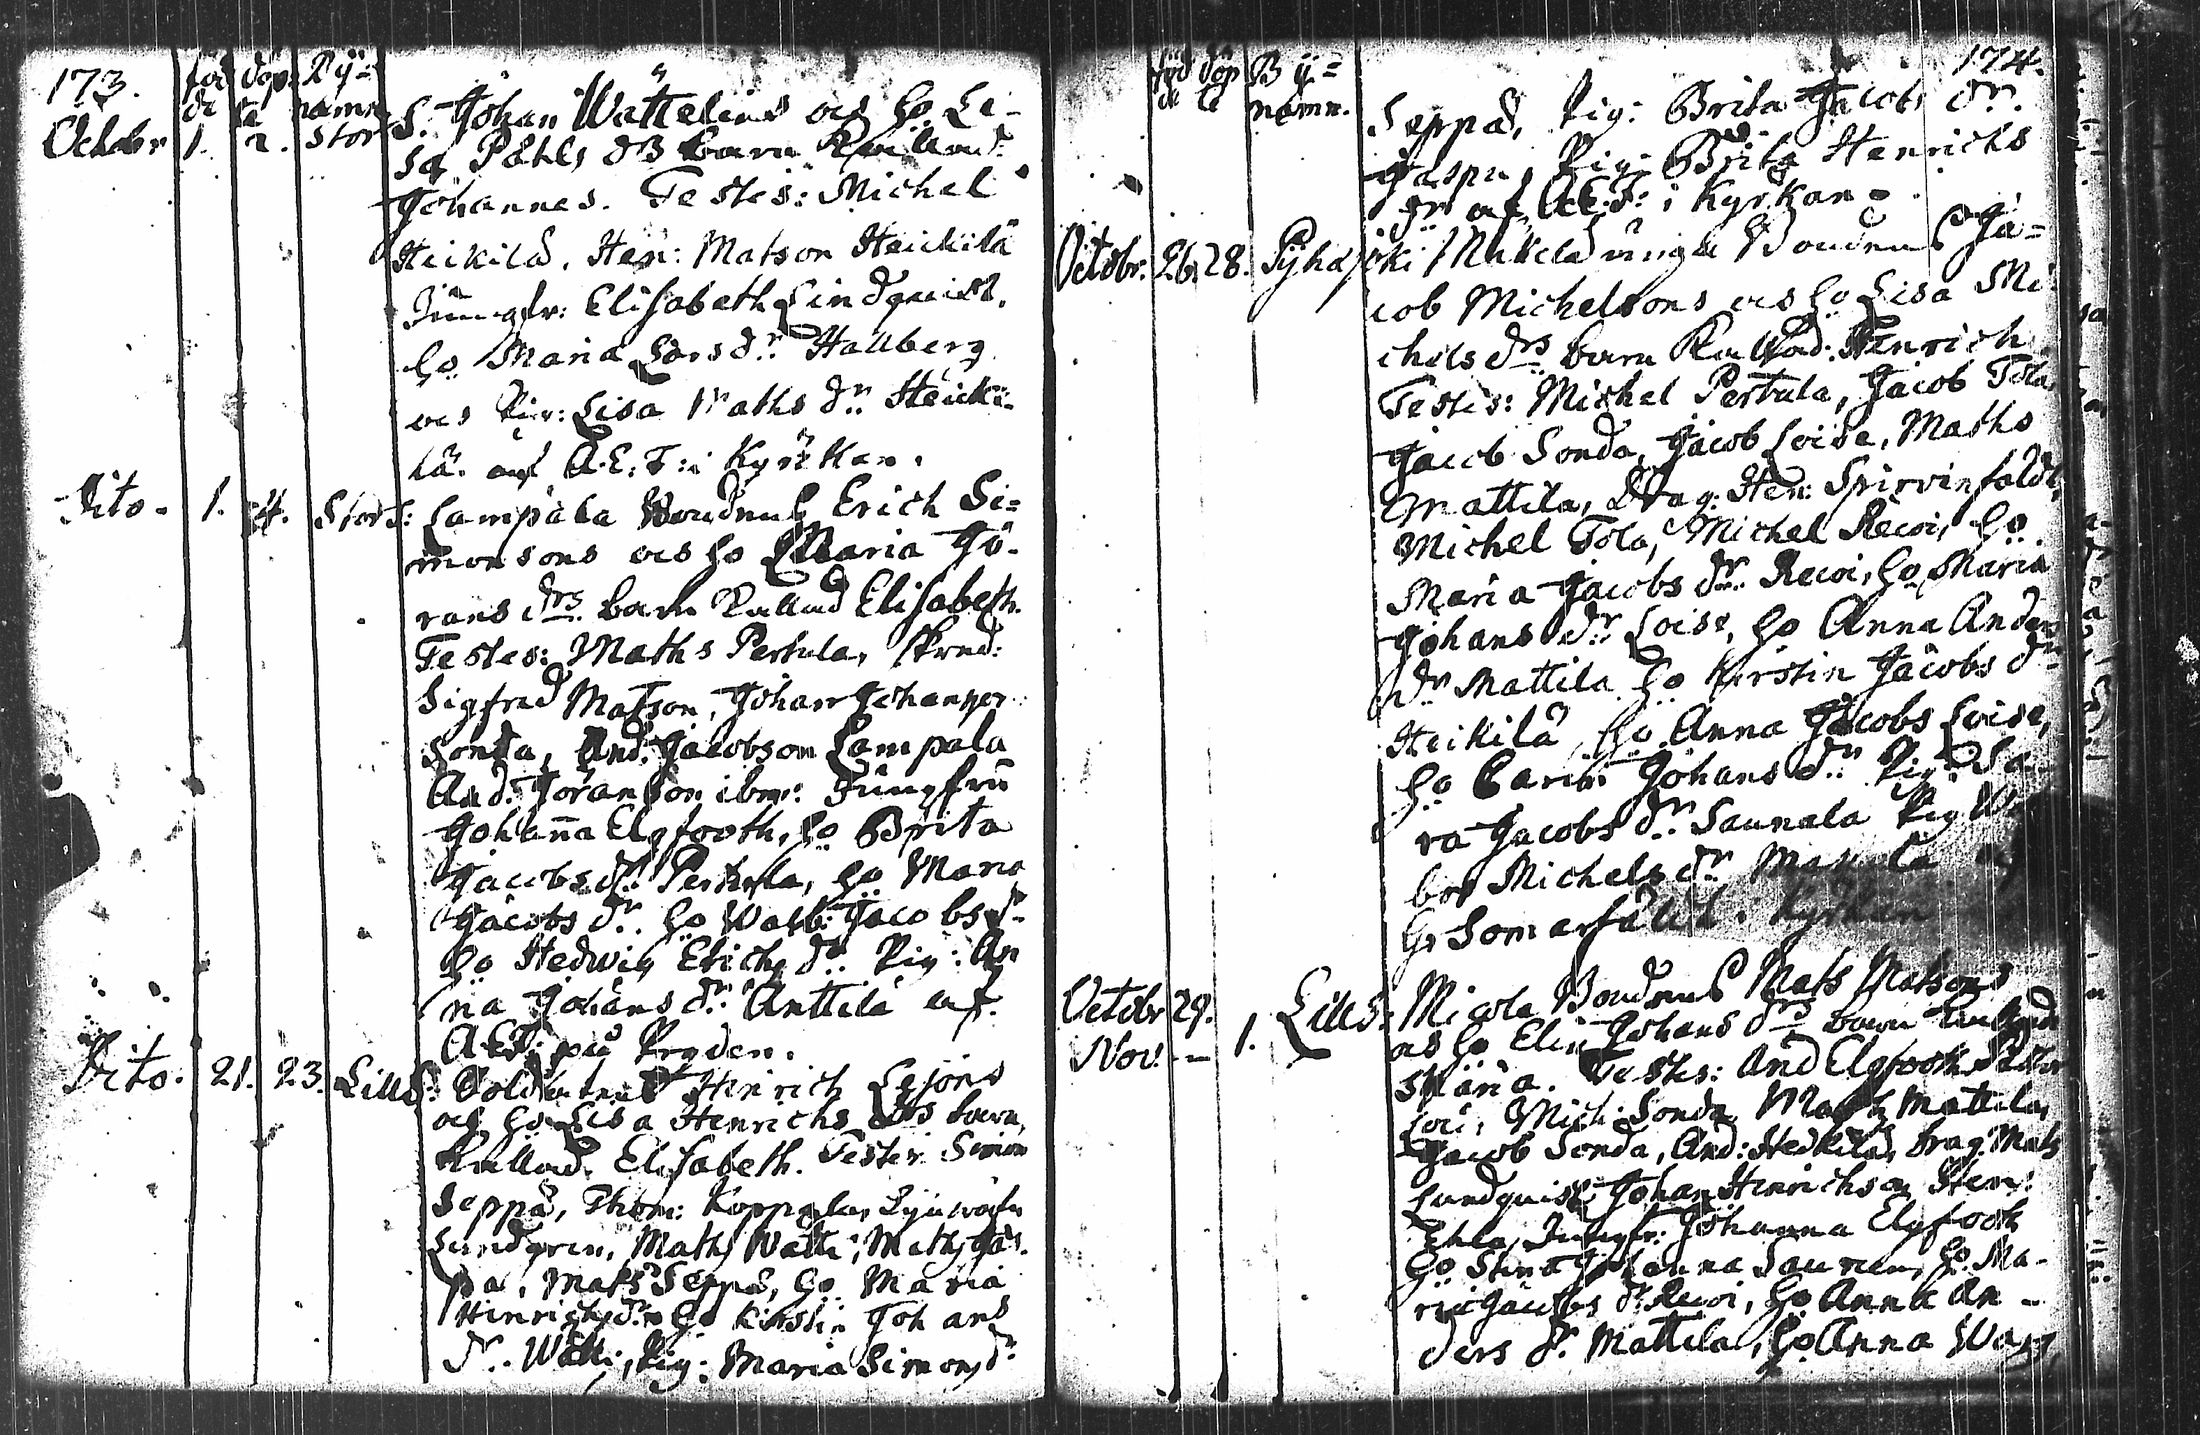 173.
född döp. By=
de te namn
October 1. 2. Stor S. Johan Wattelins och ho. Li-
sa Påhls drs barn kallad
Johannes. Testes: Michel
Heikilä, Hen: Matson Heickilä
Jungfr: Elisabeth Lindquist.
ho Maria Lars dr. Hallberg
och Pig: Lisa Maths dr. Heicki-
lä. af A.E.F: i Kyrkan.
Dito. 1. 4. Stor S: Lampala Bondens Erich Si=
monsons och ho Maria Jö-
rans drs. barn kallad Elisabeth.
Testes: Maths Pertula,
Sigfred Matson, Johan Johanson
Sonda, And: Jacobson Lampala
And. Jöranson ibm: Jungfru
Johanna Elgfooth, ho Brita
Jacobs dr. Pertula, ho Maria
Jacobs dr. ho Walb: Jacobs dr
ho Hedwig Erichs dr. Pig: An
na Johans dr. Anttila af.
A.E.F: på Pryden.
Dito. 21. 23. Lill S: Soldatens Henrich Lejons
och ho Lisa Henrichs drs barn,
kallad. Elisabeth. Testes Simon
Seppä, Thom: Koppala,
Lundgren, Maths Watti, Maths Jas-
pa, Mats Seppä, ho Maria
Hinrichs dr. ho Kirstin Johans
dr. Watti, Pig: Maria Simons dr.
174.
född döp By=
de te namn.
Seppä, Pig: Brita Jacobs dr.
Jaspa, Pig: Brita Henrichs
dr af A.E.F: i Kyrkan.
Octobr: 26. 28. Pyhäjoki Mäkelä unga Bondens Ja=
cob Michelsons och ho Lisa Mi
chels drs barn kallad: Henrich
Testes: Michel Pertula, Jacob Tola
Jacob Sonda, Jacob Loise, Maths
Mattila, Drag: Hen: Spirvinfaldt,
Michel Tola, Michel Rewi, ho
Maria Jacobs dr. Rewi, ho Maria
Johans dr Loise, ho Anna Anders
dr Mattila ho Kirstin Jacobs dr
Heikilä, ho Anna Jacobs Loise,
ho Carin Johans dr. Pig: Sa
ra Jacobs dr. Saunala Pig Wa
bor Michels dr. Mäkelä
Gr Somerfäldt i Kyrkan
October 29. Lill S: Micola Bondens Mats Matsons
Nov. — 1. och ho Elin Johans drs barn kallad
Maria. Testes: And Elgfooth
Loi, Mich: Sonda Maths Mattila,
Jacob Sonda, And: Heikilä, Drag. Mats
Lundquist Johan Henrichson Hen:
Ehla, Jungfr: Johanna Elgfooth
ho Stina Johanna Sauren, ho Ma-
ria Jacobs dr Rewi, ho Anna An-
ders dr. Mattila, ho Anna